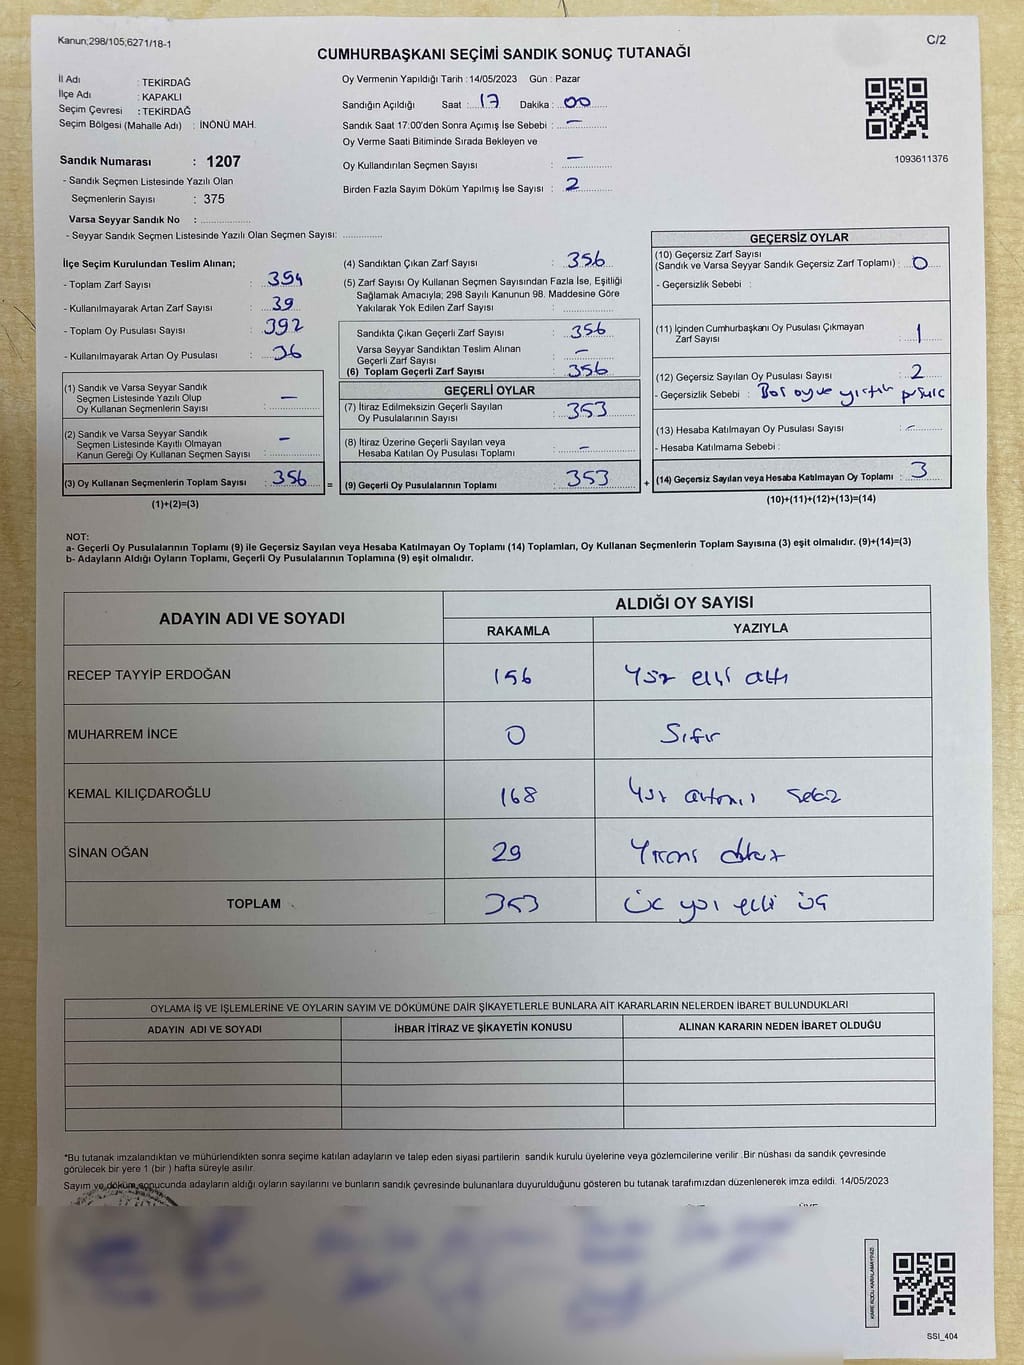 Kanun;298/105;6271/18-1
C/2
CUMHURBAŞKANI SEÇİMİ SANDIK SONUÇ TUTANAĞI
İl Adı : TEKİRDAĞ
İlçe Adı : KAPAKLI
Seçim Çevresi : TEKİRDAĞ
Seçim Bölgesi (Mahalle Adı) : İNÖNÜ MAH.
Sandık Numarası : 1207
- Sandık Seçmen Listesinde Yazılı Olan
Seçmenlerin Sayısı : 375
Varsa Seyyar Sandık No : ..............
- Seyyar Sandık Seçmen Listesinde Yazılı Olan Seçmen Sayısı: ............
Oy Vermenin Yapıldığı Tarih : 14/05/2023 Gün : Pazar
Sandığın Açıldığı Saat : 17 Dakika : 00
Sandık Saat 17:00'den Sonra Açımış İse Sebebi : —
Oy Verme Saati Bitiminde Sırada Bekleyen ve
Oy Kullandırılan Seçmen Sayısı : —
Birden Fazla Sayım Döküm Yapılmış İse Sayısı : 2
1093611376
İlçe Seçim Kurulundan Teslim Alınan;
- Toplam Zarf Sayısı : 394
- Kullanılmayarak Artan Zarf Sayısı : 39
- Toplam Oy Pusulası Sayısı : 392
- Kullanılmayarak Artan Oy Pusulası : 36
(1) Sandık ve Varsa Seyyar Sandık
Seçmen Listesinde Yazılı Olup
Oy Kullanan Seçmenlerin Sayısı : —
(2) Sandık ve Varsa Seyyar Sandık
Seçmen Listesinde Kayıtlı Olmayan
Kanun Gereği Oy Kullanan Seçmen Sayısı : —
(3) Oy Kullanan Seçmenlerin Toplam Sayısı : 356 =
(1)+(2)=(3)
(4) Sandıktan Çıkan Zarf Sayısı : 356
(5) Zarf Sayısı Oy Kullanan Seçmen Sayısından Fazla İse, Eşitliği
Sağlamak Amacıyla; 298 Sayılı Kanunun 98. Maddesine Göre
Yakılarak Yok Edilen Zarf Sayısı :
Sandıkta Çıkan Geçerli Zarf Sayısı : 356
Varsa Seyyar Sandıktan Teslim Alınan
Geçerli Zarf Sayısı : —
(6) Toplam Geçerli Zarf Sayısı : 356
GEÇERLİ OYLAR
(7) İtiraz Edilmeksizin Geçerli Sayılan
Oy Pusulalarının Sayısı : 353
(8) İtiraz Üzerine Geçerli Sayılan veya
Hesaba Katılan Oy Pusulası Toplamı : —
(9) Geçerli Oy Pusulalarının Toplamı : 353 +
GEÇERSİZ OYLAR
(10) Geçersiz Zarf Sayısı
(Sandık ve Varsa Seyyar Sandık Geçersiz Zarf Toplamı) : 0
- Geçersizlik Sebebi :
(11) İçinden Cumhurbaşkanı Oy Pusulası Çıkmayan
Zarf Sayısı : 1
(12) Geçersiz Sayılan Oy Pusulası Sayısı : 2
- Geçersizlik Sebebi : Boş oy ve yırtık
(13) Hesaba Katılmayan Oy Pusulası Sayısı : —
- Hesaba Katılmama Sebebi :
(14) Geçersiz Sayılan veya Hesaba Katılmayan Oy Toplamı : 3
(10)+(11)+(12)+(13)=(14)
NOT:
a- Geçerli Oy Pusulalarının Toplamı (9) ile Geçersiz Sayılan veya Hesaba Katılmayan Oy Toplamı (14) Toplamları, Oy Kullanan Seçmenlerin Toplam Sayısına (3) eşit olmalıdır. (9)+(14)=(3)
b- Adayların Aldığı Oyların Toplamı, Geçerli Oy Pusulalarının Toplamına (9) eşit olmalıdır.
ADAYIN ADI VE SOYADI
ALDIĞI OY SAYISI
RAKAMLA YAZIYLA
RECEP TAYYİP ERDOĞAN 156 Yüz elli altı
MUHARREM İNCE 0 Sıfır
KEMAL KILIÇDAROĞLU 168 Yüz altmış sekiz
SİNAN OĞAN 29 Yirmi dokuz
TOPLAM 353 Üç yüz elli üç
OYLAMA İŞ VE İŞLEMLERİNE VE OYLARIN SAYIM VE DÖKÜMÜNE DAİR ŞİKAYETLERLE BUNLARA AİT KARARLARIN NELERDEN İBARET BULUNDUKLARI
ADAYIN ADI VE SOYADI İHBAR İTİRAZ VE ŞİKAYETİN KONUSU ALINAN KARARIN NEDEN İBARET OLDUĞU
*Bu tutanak imzalandıktan ve mühürlendikten sonra seçime katılan adayların ve talep eden siyasi partilerin sandık kurulu üyelerine veya gözlemcilerine verilir .Bir nüshası da sandık çevresinde
görülecek bir yere 1 (bir ) hafta süreyle asılır.
Sayım ve döküm sonucunda adayların aldığı oyların sayılarını ve bunların sandık çevresinde bulunanlara duyurulduğunu gösteren bu tutanak tarafımızdan düzenlenerek imza edildi. 14/05/2023
KARE KODU KARALAMAYINIZ!
SSI_404